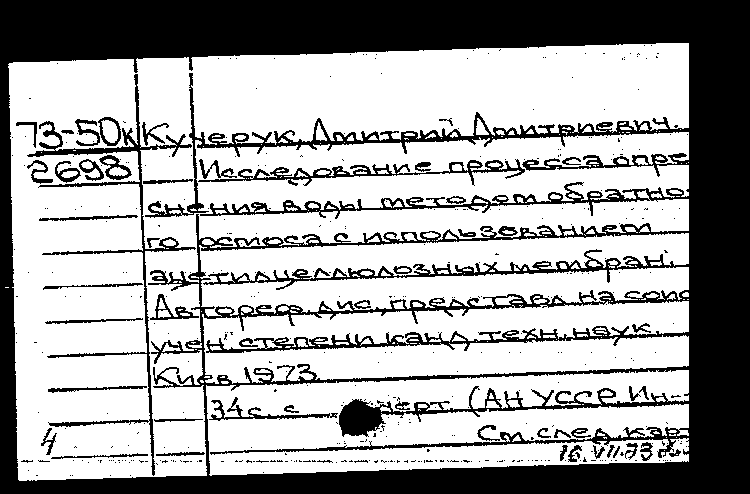 73-50к Кучерук, Дмитрий Дмитриевич.
2698 Исследование процесса опре
снения воды методом обратно-
го осмоса с использованием
ацетилцеллюлозных мембран.
Автореф. дис., представл. на соис
учен. степени канд. техн. наук.
Киев, 1973
34 с. с черт. (АН УССР. Ин-т
4 См. след. карт
16.VII.73